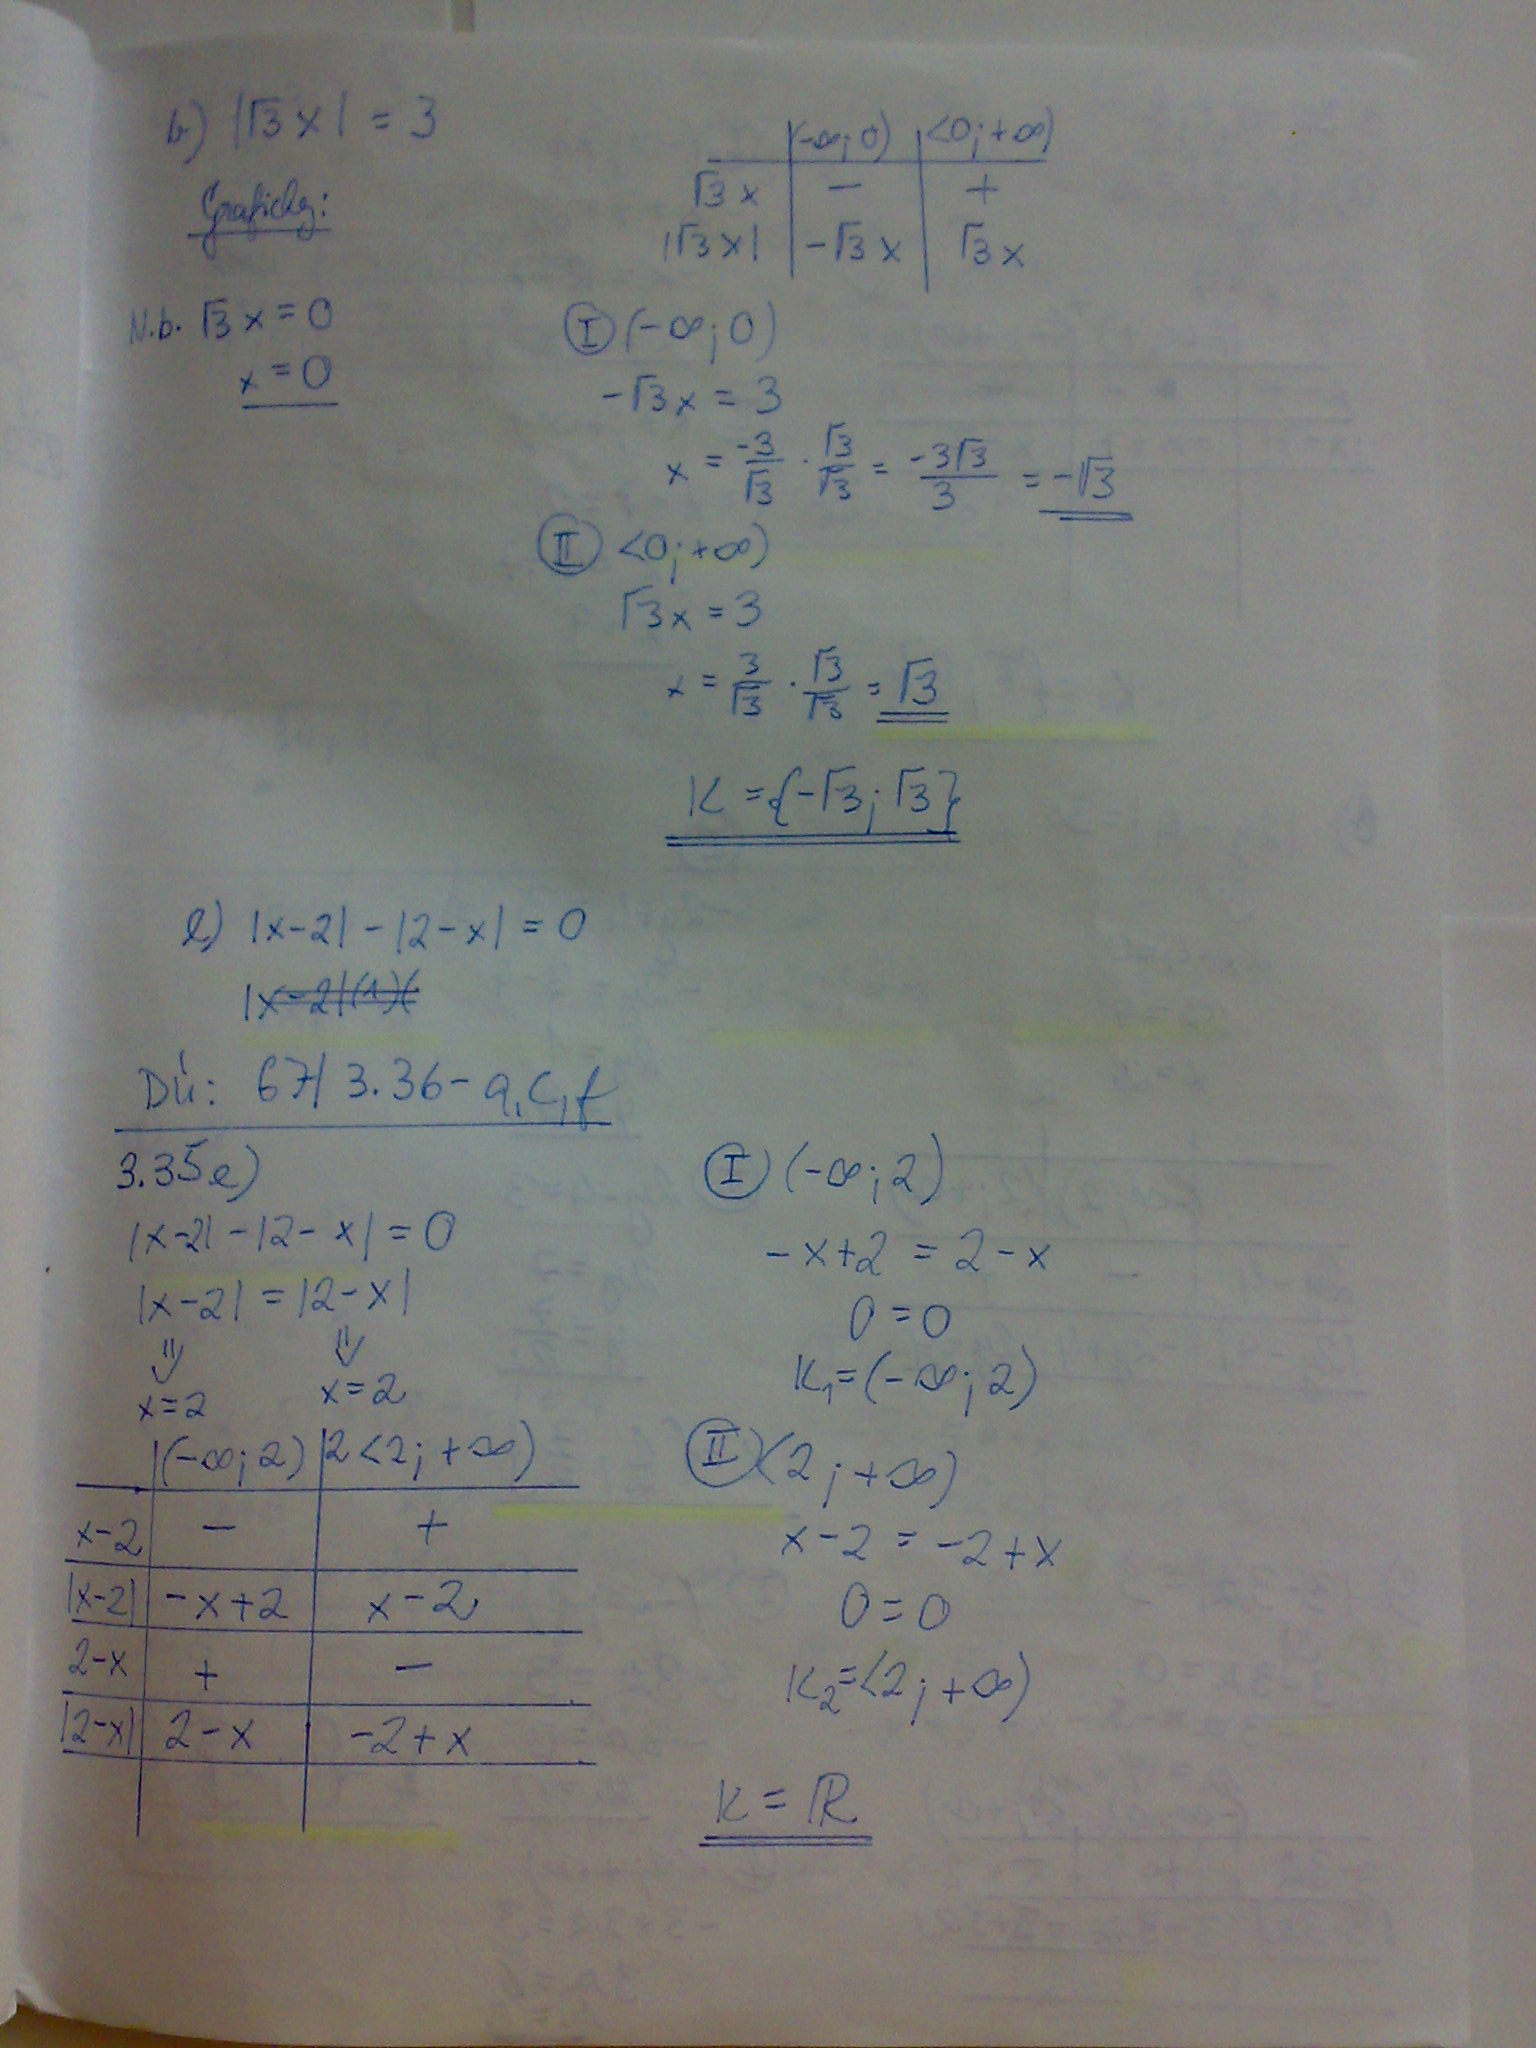 b) |√3 x| = 3
Graficky:
N.b. √3 x = 0
x = 0
(-∞; 0) | <0; +∞)
√3 x | - | +
|√3 x| | -√3 x | √3 x
I (-∞; 0)
-√3 x = 3
x = -3/√3 · √3/√3 = -3√3/3 = -√3
II <0; +∞)
√3 x = 3
x = 3/√3 · √3/√3 = √3
K = {-√3; √3}
e) |x-2| - |2-x| = 0
|x-2|(1)(
Dú: 67/3.36 - a, c, f
3.35 e)
|x-2| - |2-x| = 0
|x-2| = |2-x|
⇓ ⇓
x=2 x=2
(-∞; 2) | 2 <2; +∞)
x-2 | - | +
|x-2| | -x+2 | x-2
2-x | + | -
|2-x| | 2-x | -2+x
I (-∞; 2)
-x+2 = 2-x
0 = 0
K₁ = (-∞; 2)
II <2; +∞)
x-2 = -2+x
0 = 0
K₂ = <2; +∞)
K = ℝ